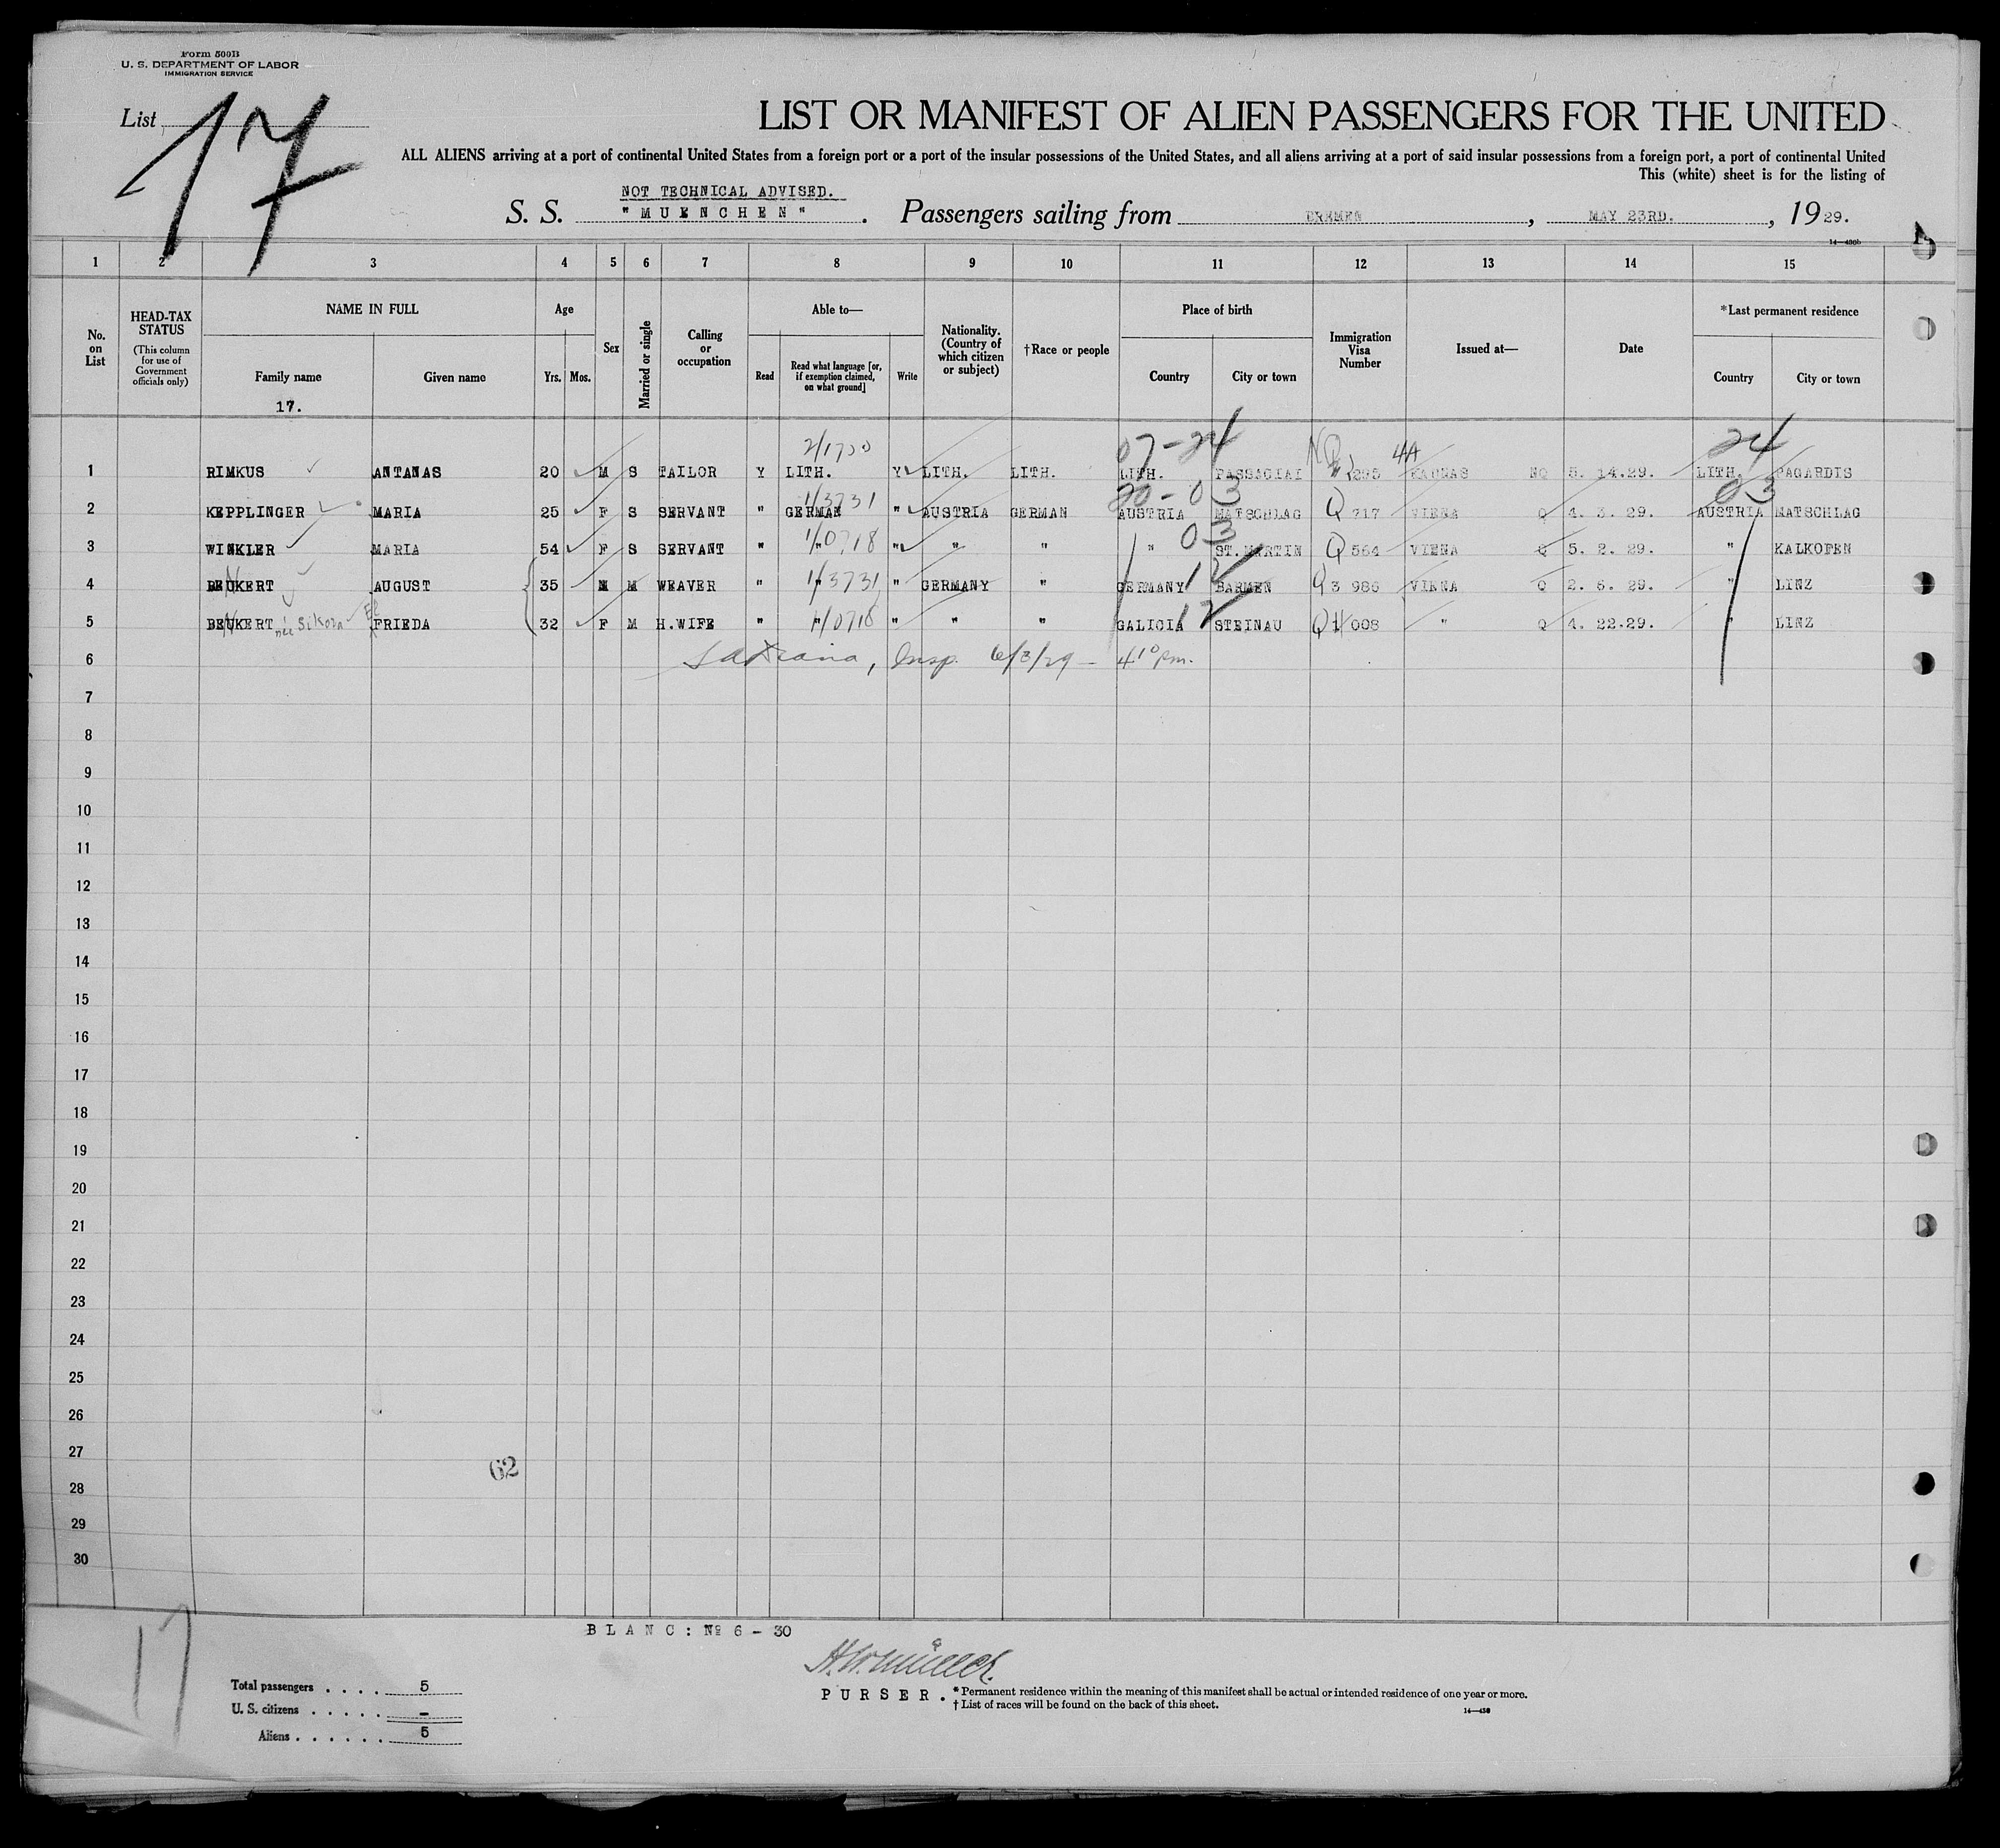 Form 500B
U. S. DEPARTMENT OF LABOR
IMMIGRATION SERVICE
List 17
LIST OR MANIFEST OF ALIEN PASSENGERS FOR THE UNITED
ALL ALIENS arriving at a port of continental United States from a foreign port or a port of the insular possessions of the United States, and all aliens arriving at a port of said insular possessions from a foreign port, a port of continental United
This (white) sheet is for the listing of
NOT TECHNICAL ADVISED.
S. S. "MUENCHEN". Passengers sailing from BREMEN, MAY 23RD., 1929.
14—430b
1 2 3 4 5 6 7 8 9 10 11 12 13 14 15
No. on List
HEAD-TAX STATUS
(This column for use of Government officials only)
NAME IN FULL
Family name
Given name
Age
Yrs. Mos.
Sex
Married or single
Calling or occupation
Able to—
Read
Read what language [or, if exemption claimed, on what ground]
Write
Nationality. (Country of which citizen or subject)
†Race or people
Place of birth
Country
City or town
Immigration Visa Number
Issued at—
Date
*Last permanent residence
Country
City or town
17.
2/1700 07-24 NQ 4A 24
1 RIMKUS ANTANAS 20 M S TAILOR Y LITH. Y LITH. LITH. LITH. 1295 KAUNAS NQ 5. 14.29. LITH. PAGARDIS
1/3731 20-03 03
2 KEPPLINGER MARIA 25 F S SERVANT " GERMAN " AUSTRIA GERMAN AUSTRIA MATSCHLAG Q 717 VIENA Q 4. 3. 29. AUSTRIA MATSCHLAG
3 WINKLER MARIA 54 F S SERVANT " " 1/0718 " " " " 03 ST. MARTIN Q 564 VIENA Q 5. 2. 29. " KALKOFEN
4 BEUKERT AUGUST 35 M M WEAVER " " 1/3731 " GERMANY " GERMANY 12 BARMEN Q 3 986 VIENA Q 2. 6. 29. " LINZ
5 BEUKERT née Sikora FRIEDA 32 F M H.WIFE " " 1/0718 " " " GALICIA 12 STEINAU Q 008 " Q 4. 22.29. " LINZ
6 Insp. 6/3/29 — 4 10 pm.
7
8
9
10
11
12
13
14
15
16
17
18
19
20
21
22
23
24
25
26
27
62
28
29
30
17
BLANC: Nº 6 - 30
H.W. Müller.
PURSER.
*Permanent residence within the meaning of this manifest shall be actual or intended residence of one year or more.
† List of races will be found on the back of this sheet.
14—430
Total passengers . . . . 5
U. S. citizens . . . . . -
Aliens . . . . . . 5